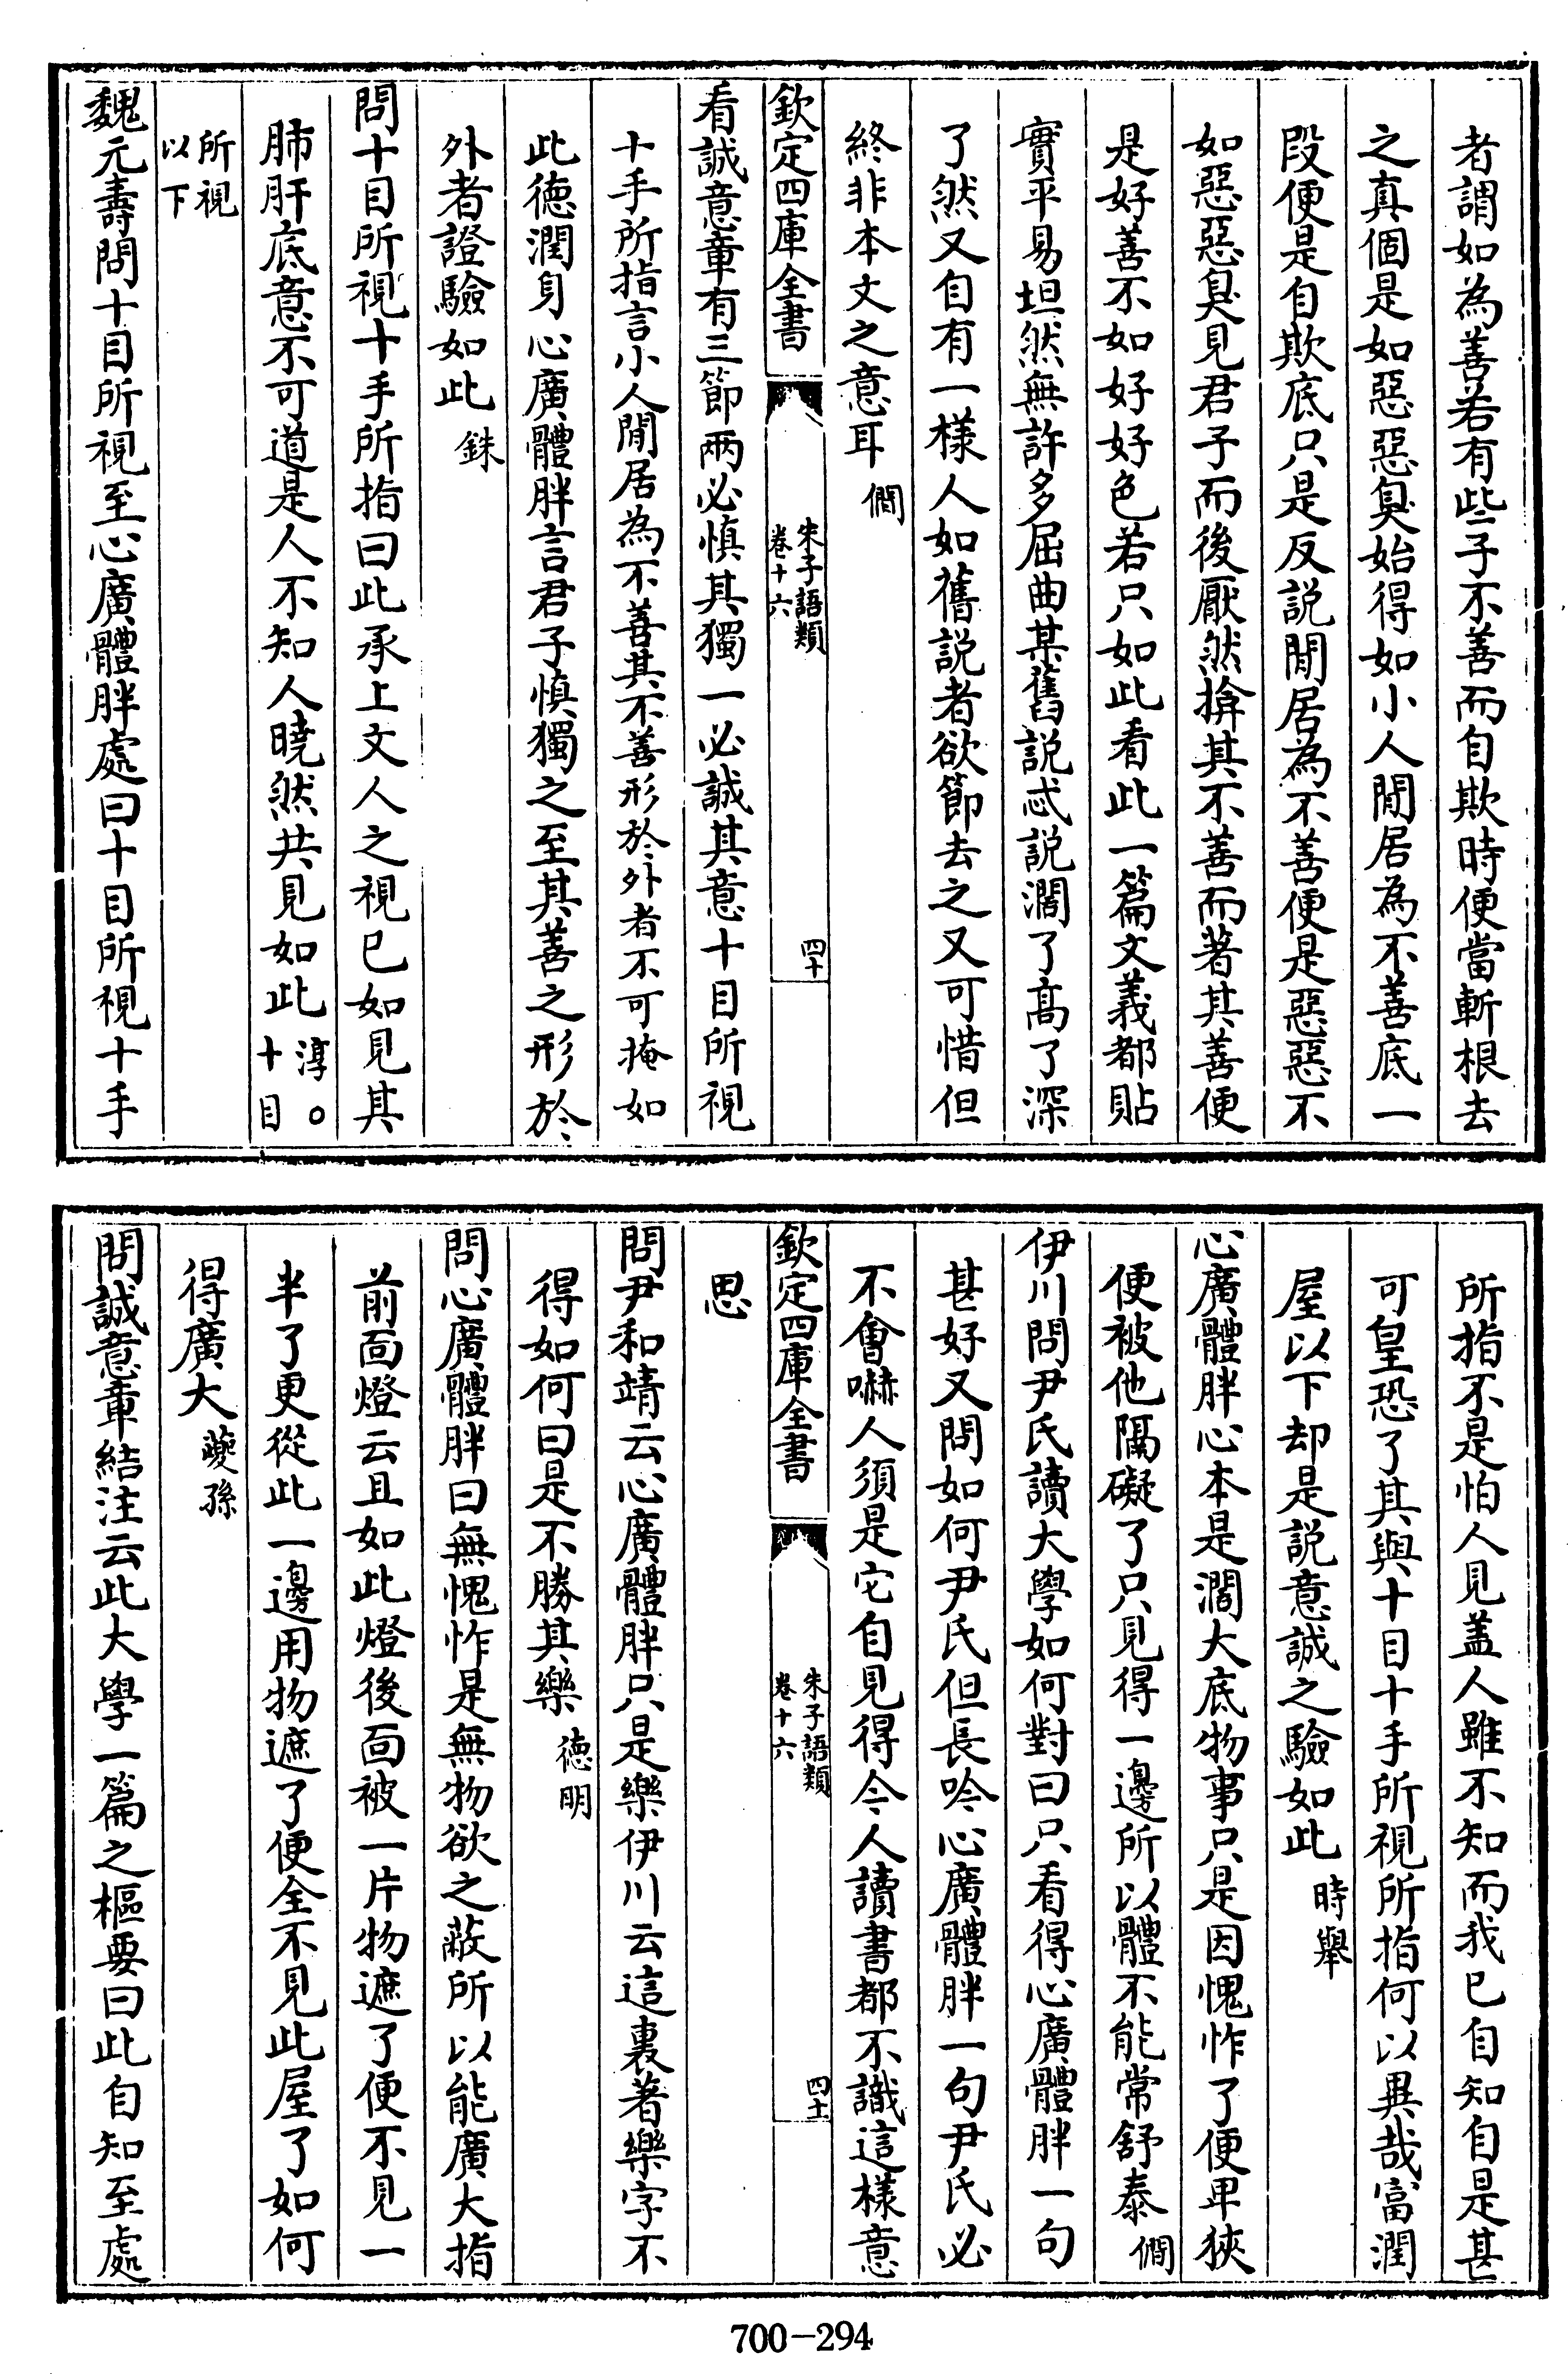 者謂如為善若有些子不善而自欺時便當斬根去
之真個是如惡惡臭始得如小人閒居為不善底一
段便是自欺底只是反説閒居為不善便是惡惡不
如惡惡臭見君子而後厭然揜其不善而著其善便
是好善不如好好色若只如此看此一篇文義都貼
實平易坦然無許多屈曲某舊説忒説濶了髙了深
了然又自有一様人如舊説者欲節去之又可惜但
終非本文之意耳僩
欽定四庫全書
朱子語類
卷十六
四十
看誠意章有三節兩必慎其獨一必誠其意十目所視
十手所指言小人閒居為不善其不善形於外者不可掩如
此徳潤身心廣體胖言君子慎獨之至其善之形於
外者證驗如此銖
問十目所視十手所指曰此承上文人之視已如見其
肺肝底意不可道是人不知人曉然共見如此淳○十目
所視以下
魏元壽問十目所視至心廣體胖處曰十目所視十手
所指不是怕人見盖人雖不知而我已自知自是甚
可皇恐了其與十目十手所視所指何以異哉富潤
屋以下却是説意誠之驗如此時舉
心廣體胖心本是濶大底物事只是因愧怍了便卑狹
便被他隔礙了只見得一邊所以體不能常舒泰僩
伊川問尹氏讀大學如何對曰只看得心廣體胖一句
甚好又問如何尹氏但長吟心廣體胖一句尹氏必
不會嚇人須是它自見得今人讀書都不識這様意
欽定四庫全書
朱子語類
卷十六
四十一
思
問尹和靖云心廣體胖只是樂伊川云這裏著樂字不
得如何曰是不勝其樂徳明
問心廣體胖曰無愧怍是無物欲之蔽所以能廣大指
前面燈云且如此燈後面被一片物遮了便不見一
半了更從此一邊用物遮了便全不見此屋了如何
得廣大夔孫
問誠意章結注云此大學一篇之樞要曰此自知至處
700-294